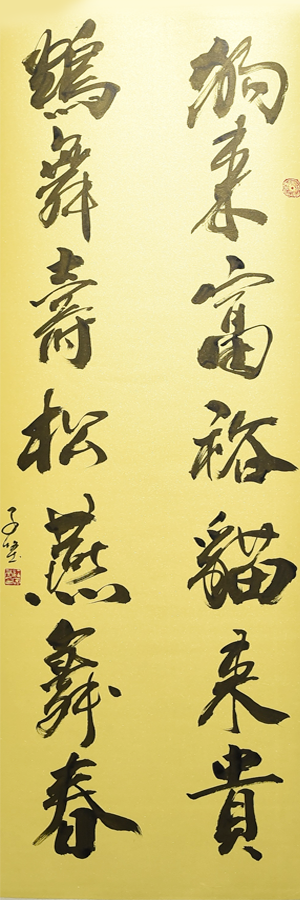 狗來富裕貓來貴
鶴舞壽松燕舞春